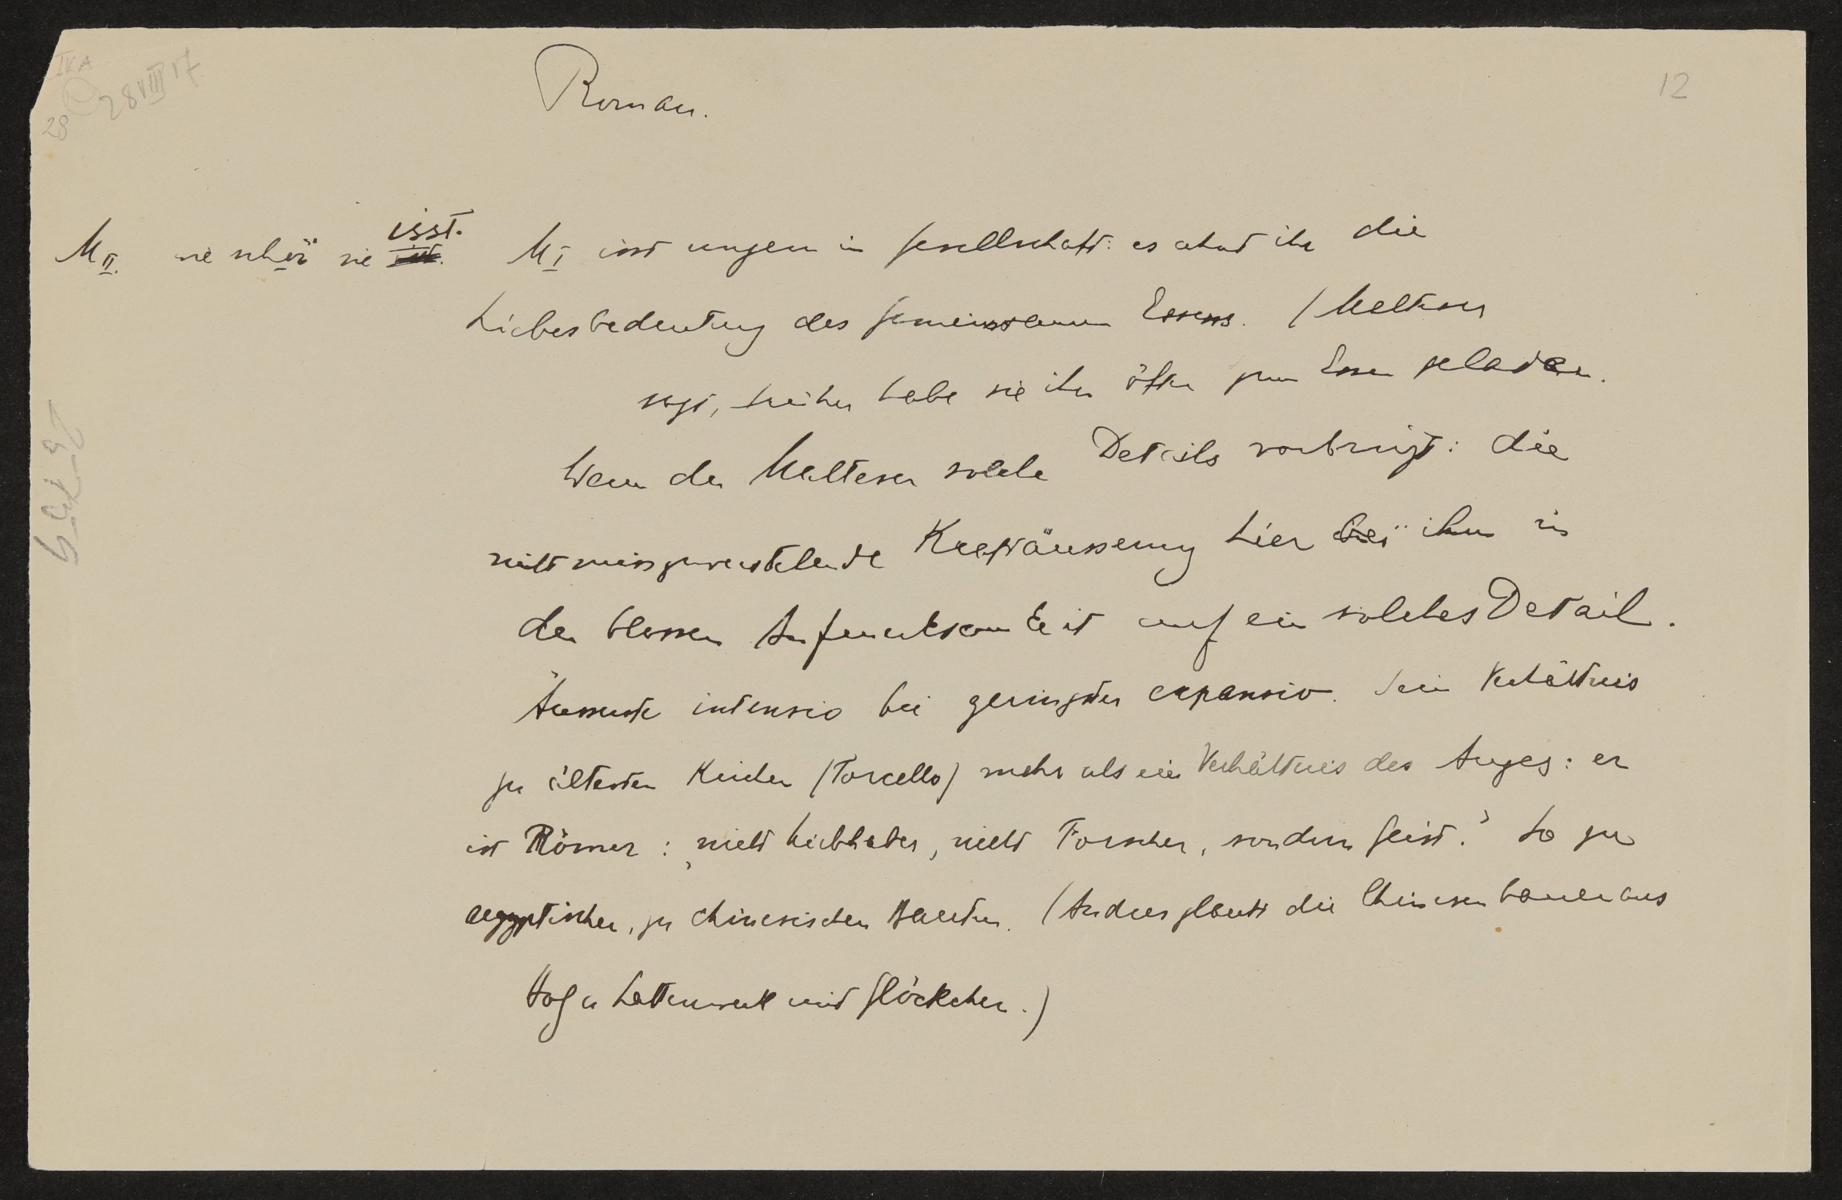 28 VIII 17
28
12
Roman.
M II. wie schön sie isst.
M I isst ungern in Gesellschaft: es ahnt ihr die
Liebesbedeutung des gemeinsamen Essens. (Malteser
sagt, früher habe sie ihn öfter zum Essen geladen.
Wenn der Malteser solche Details vorbringt: die
nicht misszuverstehende Kraftäusserung hier bei ihm in
der blossen Aufmerksamkeit auf ein solches Detail.
Äusserste intensio bei geringster expansio. Sein Verhältnis
zu ältesten Kirchen (Torcello) mehr als ein Verhältnis des Auges: er
ist Römer: „nicht Liebhaber, nicht Forscher, sondern Geist.“ So zu
aegyptischen, zu chinesischen Bauten. (Andres glaubt die Chinesen bauen aus
Holz u Lattenwerk mit Glöckchen.)